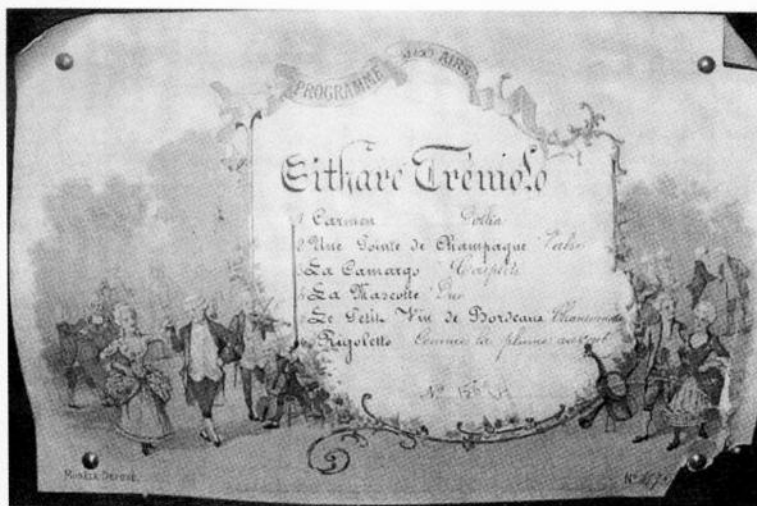 PROGRAMME DES AIRS
Cithare Trémolo
1 Carmen Polka
2 Une Pointe de Champagne Valse
3 La Camargo Couplets
4 La Mascotte Duo
5 Le Petit Vin de Bordeaux Chansonnette
6 Rigoletto Comme la plume au vent
No
MODÈLE DÉPOSÉ.
No